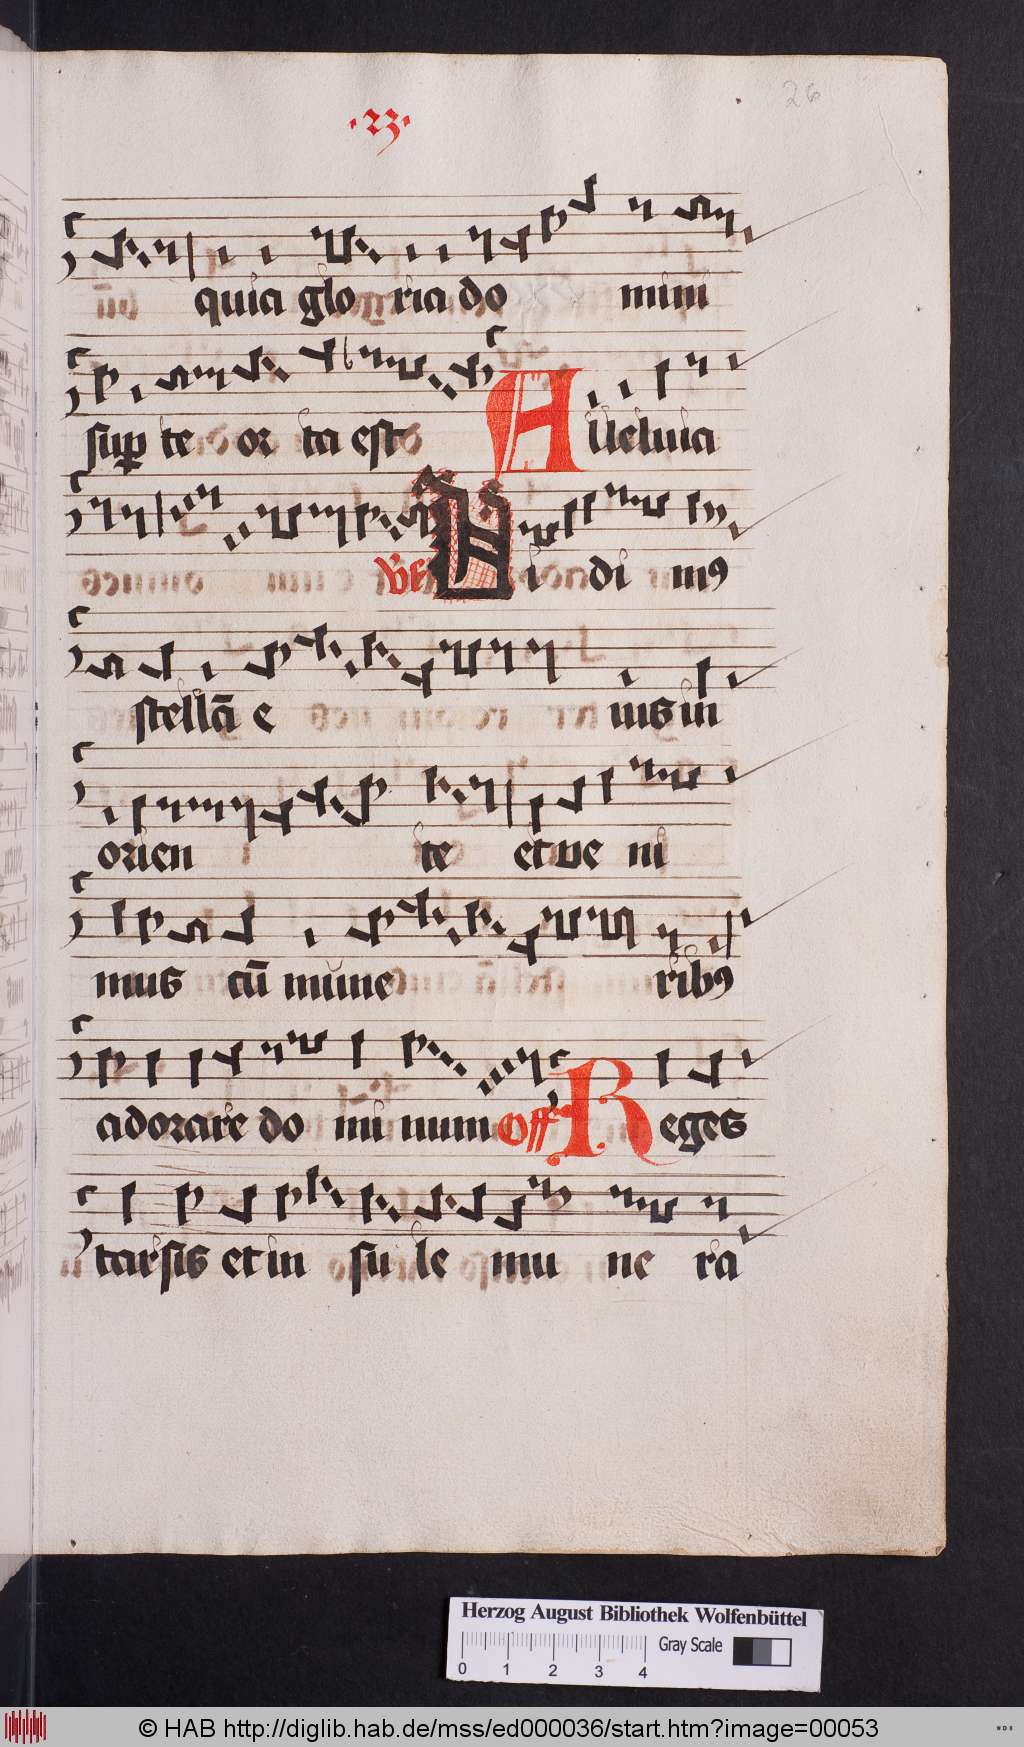 26
·23·
quia glo ria do mini
sup te or ta est Alleluia
VE Vi di mꝰ
stellā e ius in
orien te et ve ni
mus cū mune ribꝰ
adorare do mi num Off Reges
tarsis et in su le mu ne ra
Herzog August Bibliothek Wolfenbüttel
Gray Scale
0 1 2 3 4
© HAB http://diglib.hab.de/mss/ed000036/start.htm?image=00053